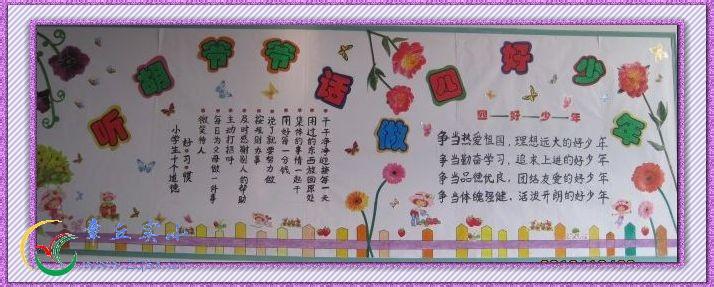 听胡爷爷话做四好少年
小学生十个道德
好·习·惯
微笑待人
每日为父母做一件事
主动打招呼
及时感谢别人的帮助
按规则办事
说了就要努力做
用好每一分钱
集体的事情一起干
用过的东西放回原处
干干净净迎接每一天
四—好—少—年
争当热爱祖国，理想远大的好少年
争当勤奋学习，追求上进的好少年
争当品德优良，团结友爱的好少年
争当体魄强健，活泼开朗的好少年
章丘实小